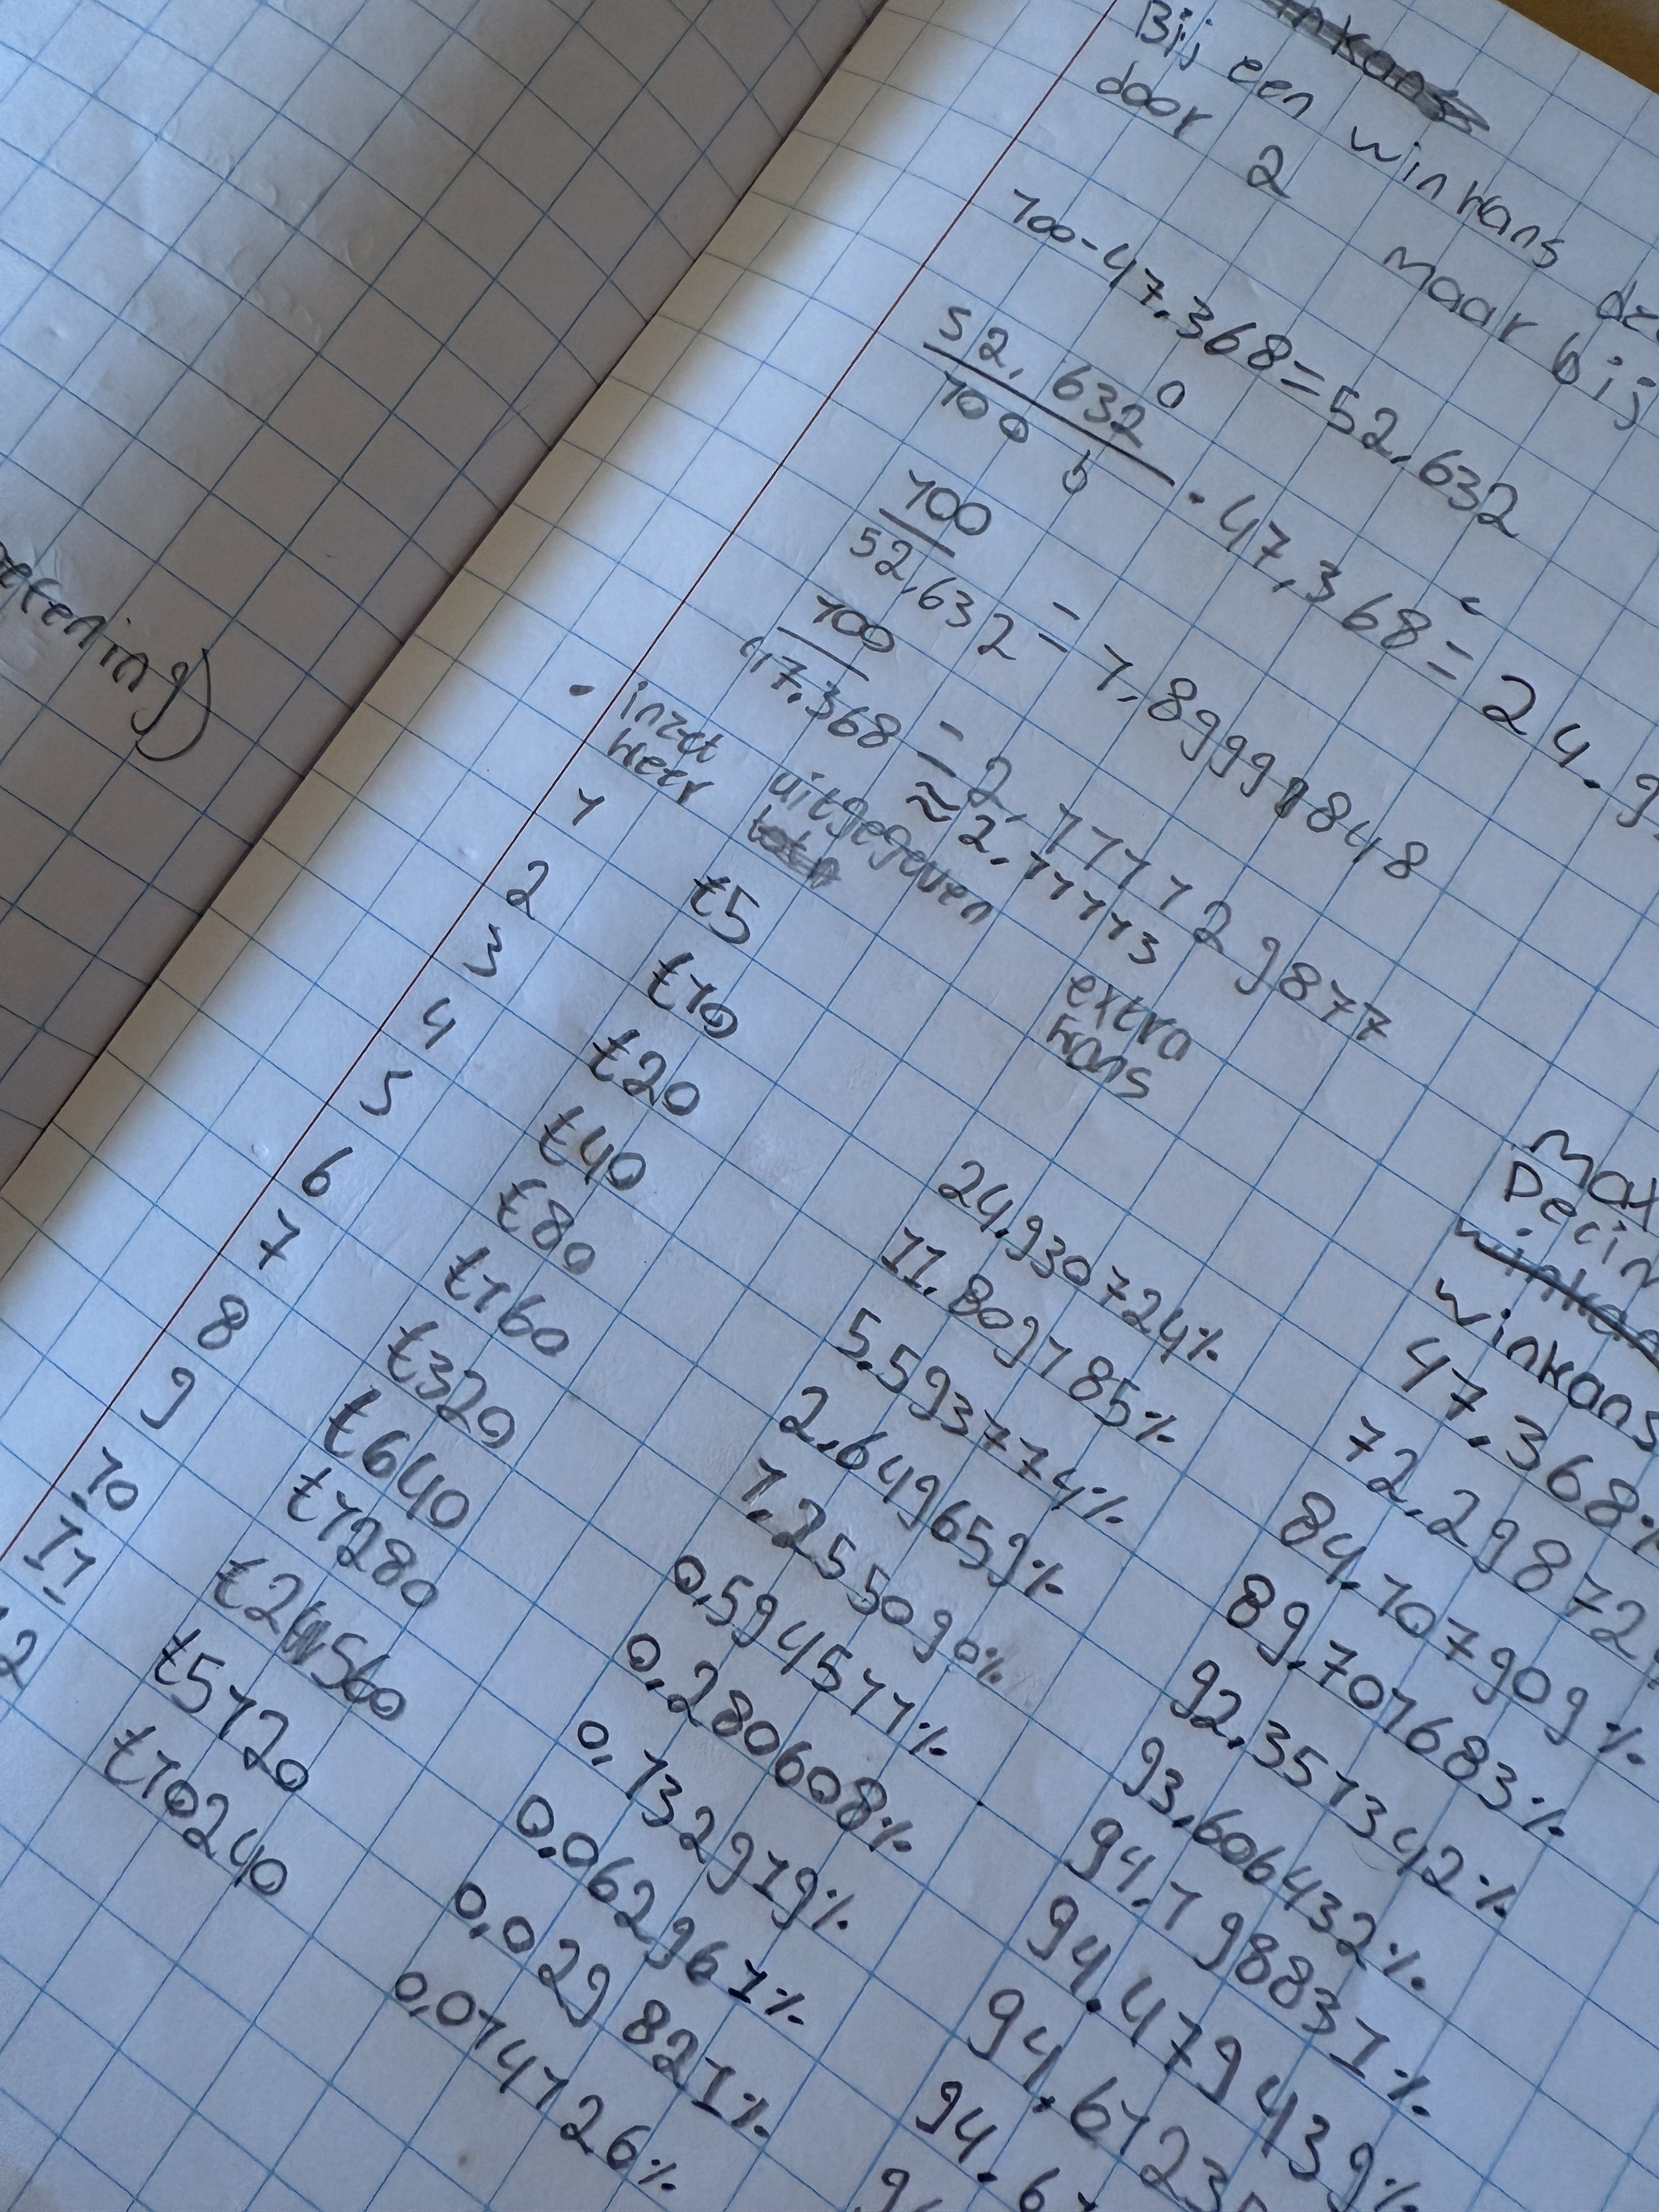 Bij een winkans
door 2 maar bij
100-47,368=52,632
52,632
100 · 47,368= 24.9
100
52,632 = 1,89999848
100
47,368 = 2,111129877
≈ 2,11113
inzet uitgegeven extra
keer kans
winkans
1 €5 47.368%
2 €10 24.930724% 72.29872
3 €20 11.809185% 84.107909%
4 €40 5.593774% 89,701683%
5 €80 2.649659% 92.351342%
6 €160 1.255090% 93.606432%
7 €320 0,594511% 94.198831%
8 €640 0.280608% 94.479439%
9 €1280 0.132919% 94.61235
10 €2560 0.062961% 94.67
11 €5120 0,029821%
€10240 0,014126%